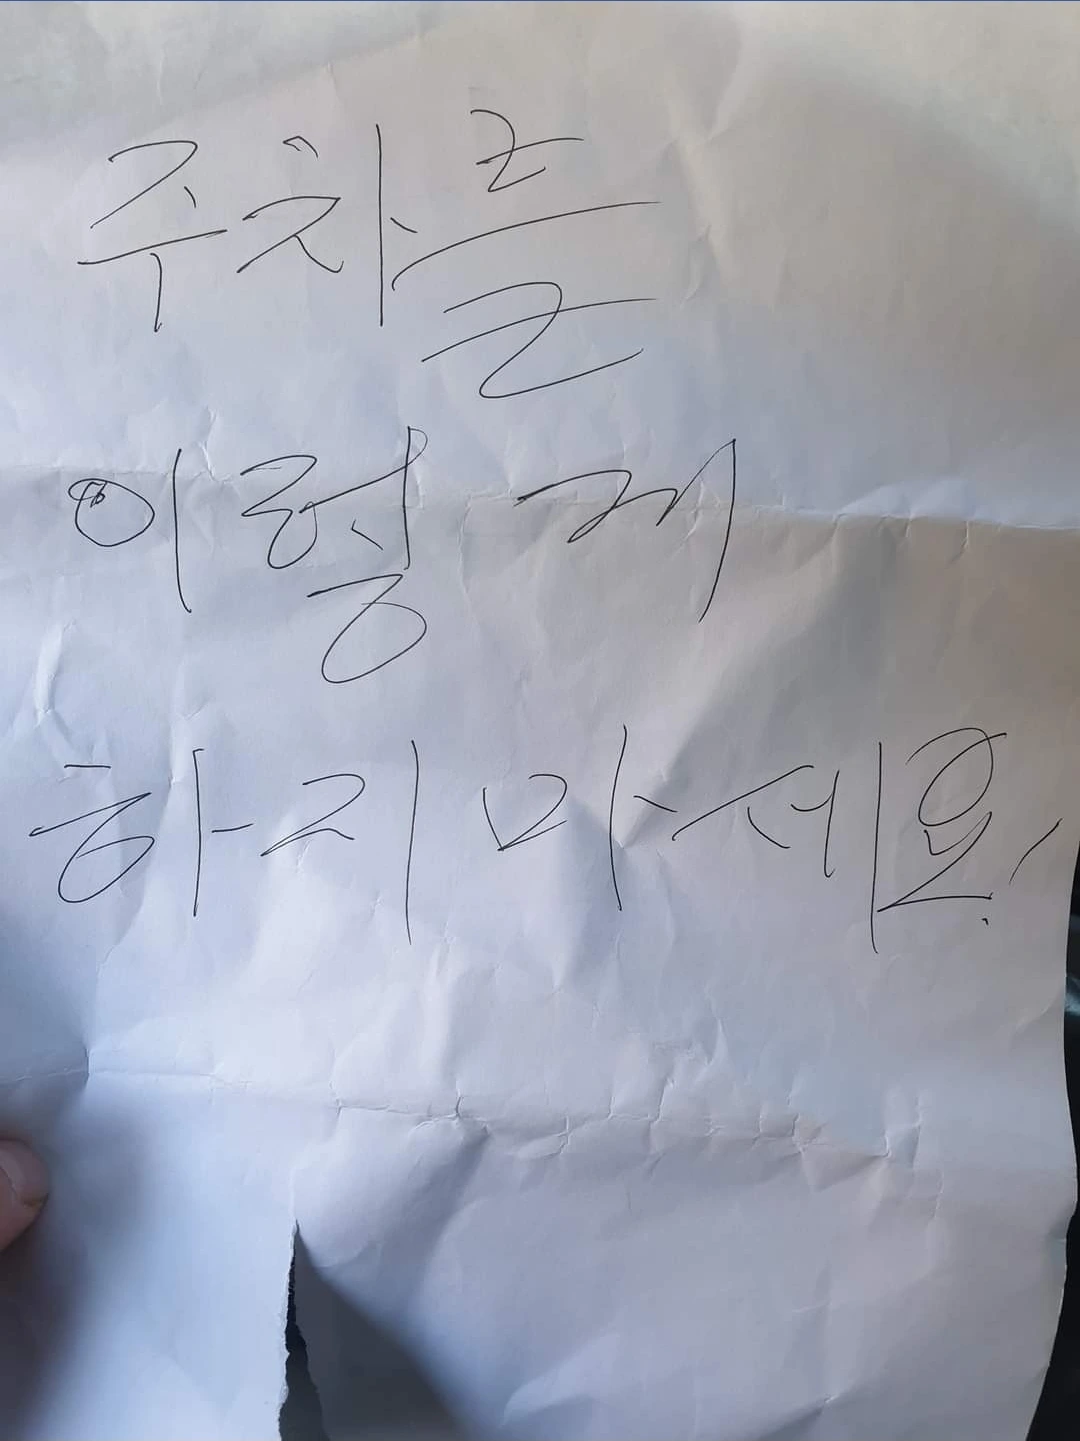 주차를
이렁게
하지마세요!